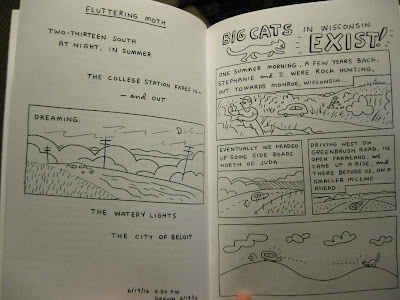 FLUTTERING MOTH
TWO-THIRTEEN SOUTH
AT NIGHT, IN SUMMER
THE COLLEGE STATION FADES IN—
— and OUT
DREAMING.
THE WATERY LIGHTS
THE CITY OF BELOIT
6/19/16 4:50 PM
DRAWN
BIG CATS IN WISCONSIN
EXIST!
ONE SUMMER MORNING, A FEW YEARS BACK,
STEPHANIE and I WERE ROCK HUNTING,
OUT TOWARDS MONROE, WISCONSIN...
EVENTUALLY WE HEADED
UP SOME SIDE ROADS
NORTH OF JUDA...
DRIVING WEST ON
GREENBRUSH ROAD, IN
OPEN FARMLAND, WE
CAME UP A RISE, and
THERE BEFORE US, ON A
SMALLER INCLINE
AHEAD...